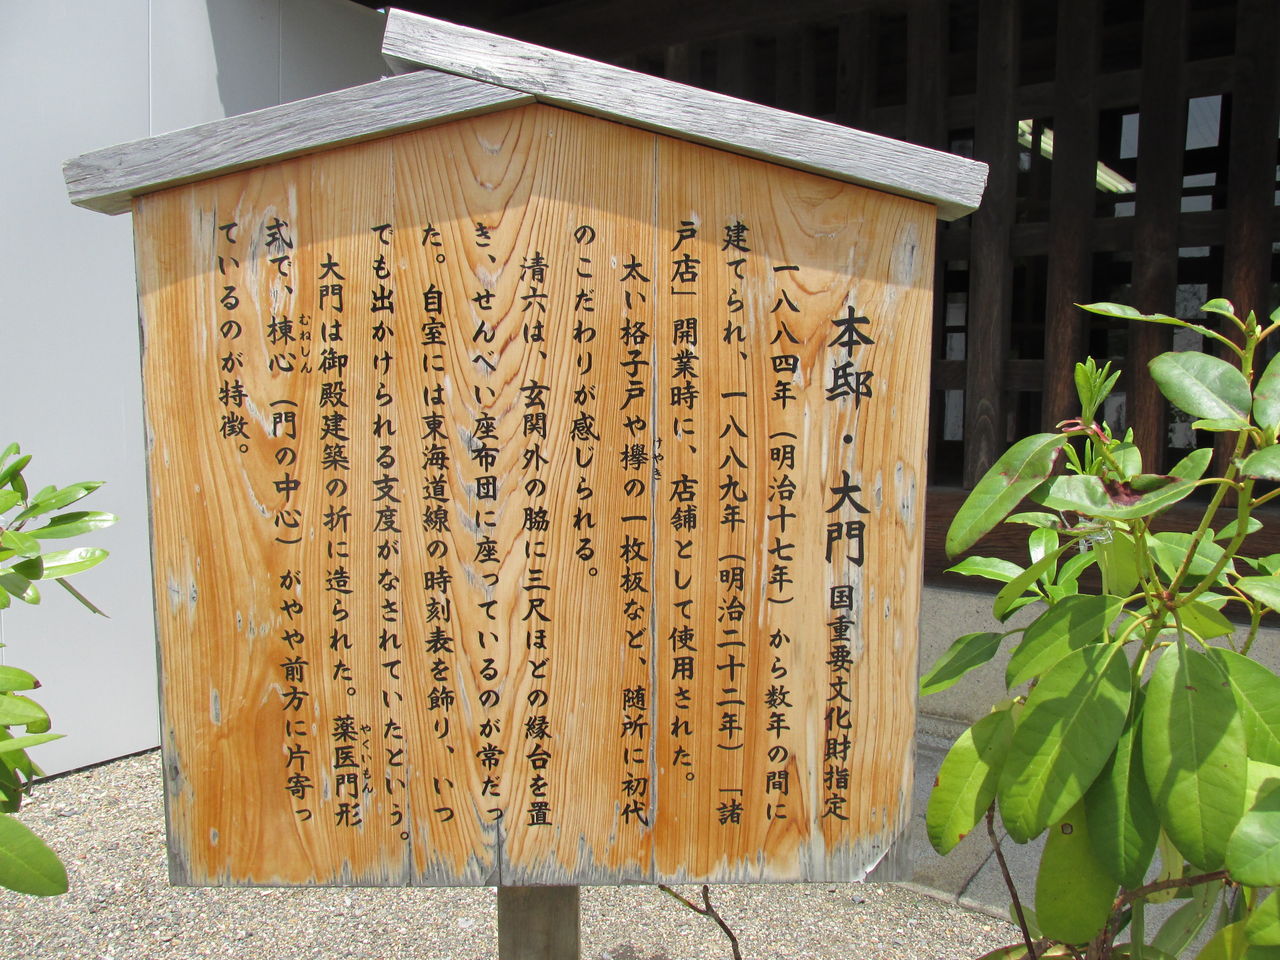 本邸・大門 国重要文化財指定
一八八四年（明治十七年）から数年の間に
建てられ、一八八九年（明治二十二年）「諸
戸店」開業時に、店舗として使用された。
太い格子戸や欅の一枚板など、随所に初代
けやき
のこだわりが感じられる。
清六は、玄関外の脇に三尺ほどの縁台を置
き、せんべい座布団に座っているのが常だっ
た。自室には東海道線の時刻表を飾り、いつ
でも出かけられる支度がなされていたという。
大門は御殿建築の折に造られた。薬医門形
やくいもん
式で、棟心（門の中心）がやや前方に片寄っ
むねしん
ているのが特徴。